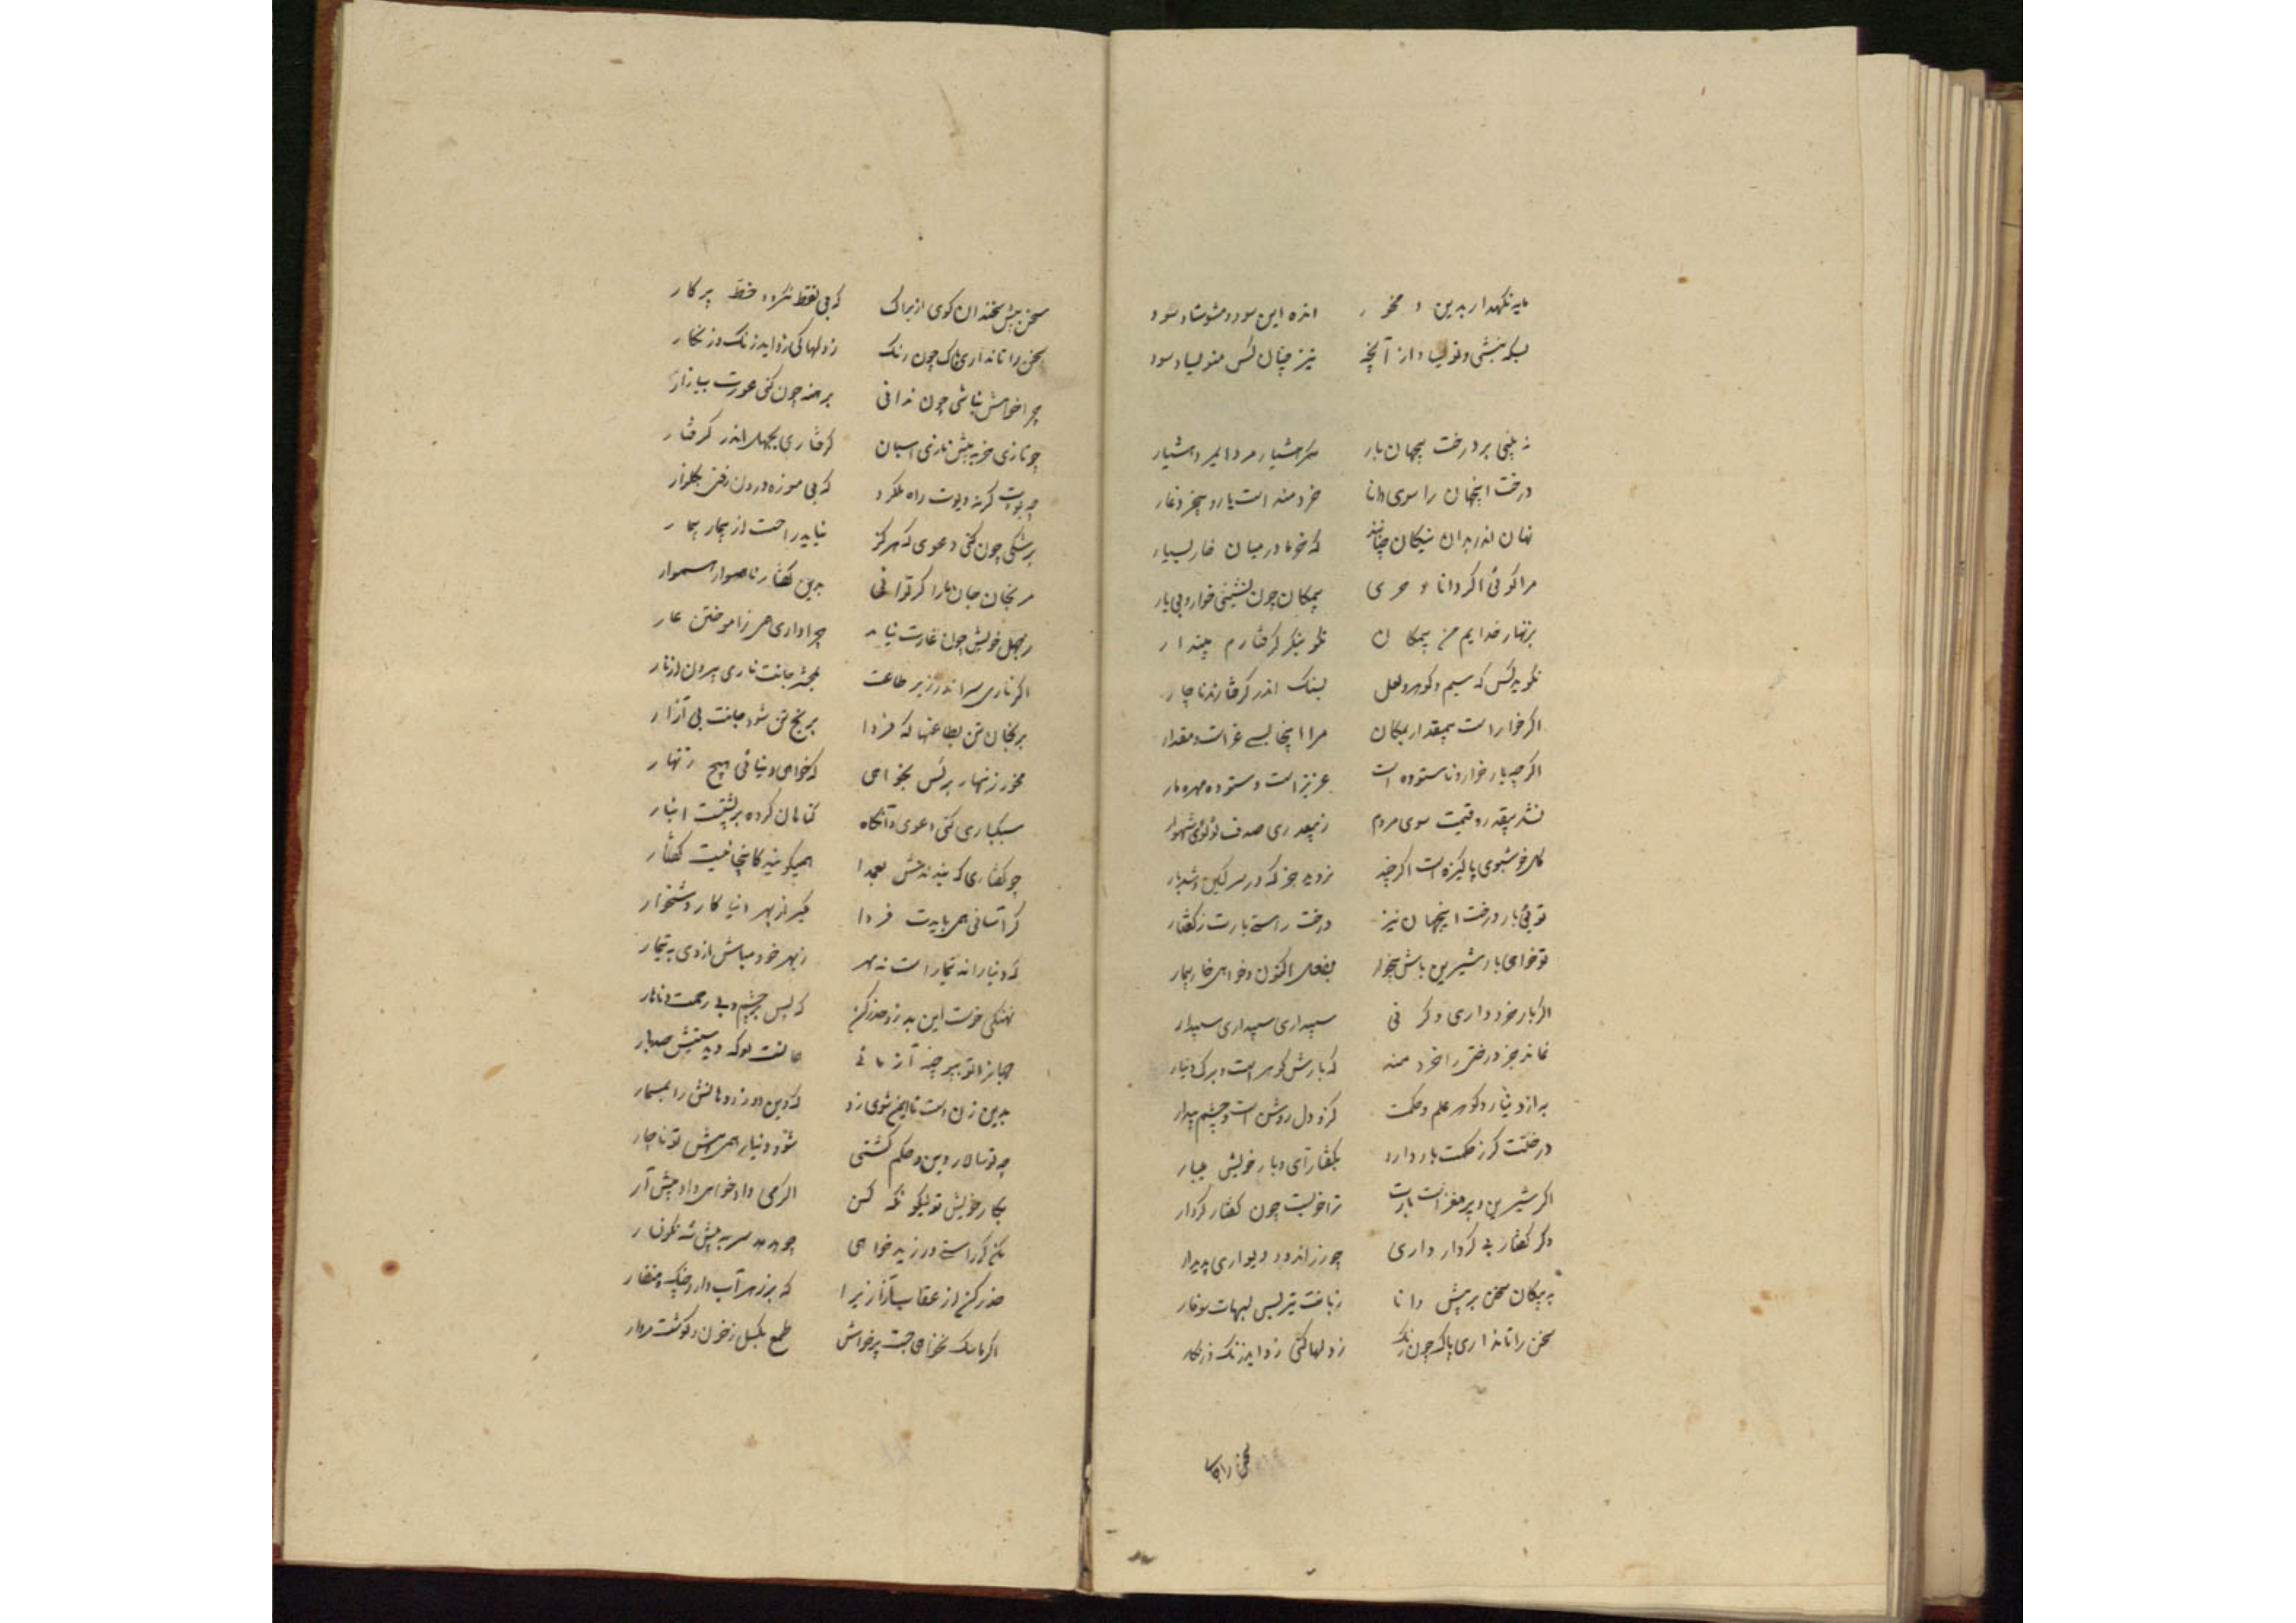 مایه نگهدار بدین و مخور انده این سود و مشو شاد سود
نیز چنان کس
نه بینی بر درخت این جهان بار مگر هشیار مرد ای مرد هشیار
درخت اینجهان را سوی دانا خردمند است بار و بیخرد خار
نهان اندر بدان نیکان چنانند که خرما در میان خار بسیار
مرا گوئی اگر دانا و حری بیمکان چون نشینی خوار و بی یار
بزنهار خدایم من بیمکان نکو بنگر گرفتارم مپندار
نگوید کس که سیم و گوهر و لعل بسنگ اندر گرفتارند ناچار
اگر خوار است و بیمقدار یمکان مرا اینجا بسے عز است و مقدار
اگرچه مار خوار و ناستوده است عزیز است و ستوده مهره مار
نشد بیقدر و قیمت سوی مردم ز بیقدری صدف لؤلؤی شهوار
گل خوشبوی پاکیزه است اگرچه نروید جز که در سرگین و شدیار
توئی بار درخت اینجهان نیز درخت راستے بارت ز گفتار
تو خواهی بار شیرین باش بیخار بفعل اکنون و خواهی خار بیبار
اگر بار خرد داری و گر نی سپیداری سپیداری سپیدار
نماند جز درختی را خردمند که بارش گوهر است و برگ دینار
به از دینار و گوهر علم و حکمت کزو دل روشن است و چشم بیدار
درختت گر ز حکمت بار دارد بگفتار آی و بار خویش میبار
اگر شیرین و پر مغز است بارت ترا خوبست چون گفتار کردار
وگر گفتار بے کردار داری چو زر اندود دیواری پدیدار
به پیکان سخن بر پیش دانا زبانت تیر بس لبهات سوفار
سخن را تا نداری پاک چون زنگ ز دلها کی زداید زنگ و زنگار
سخن را تا
سخن پیش سخندان گوی ازیراک که بی نقطه نگردد خط پرکار
سخن را تا نداری پاک چون رنگ ز دلها کی زداید زنگ و زنگار
چرا خامش نباشی چون ندانی برهنه چون کنی عورت ببازار
چو تازی خر به پیش تازی اسبان گرفتاری بجهل اندر گرفتار
چه بوده است گر نه دیوت راه گم کرد که بی موزه درون رفتی بگلزار
پزشکی چون کنی دعوی که هرگز نیابد راحت از بیمار بیمار
مرنجان جان ما را گر توانی بدین گفتار ناهموار هموار
ز جهل خویش چون عارت نیاید چرا داری همی ز آموختن عار
اگر ناری سر اندر زیر طاعت بمحشر جانت ناری بیرون از نار
برنجان تن بطاعتها که فردا برنج تن شود جانت بی آزار
مخور زنهار بر کس گر بخواهی که خواهی و نیابی هیچ زنهار
سبکباری کنی دعوی و آنگاه گناهان کرده بر پشتت انبار
چو گفتاری که بندندش بعمدا همیگویند کاینجا نیست گفتار
گر آسانی همی بایدت فردا مگیر از بهر دنیا کار دشخوار
که دنیا را نه تیمار است نه مهر ز بهر خود مباش از وی به تیمار
نهنگی خوست این بد زو حذر کن که بس پر خشم و بے رحمت و ناهار
جهانرا نو بنو چند آزمائے همانست او که دیدستیش صد بار
بدین زن دست تا ایمن شوی زو که دین دوزد دهانش را بمسمار
چو تو سالار دین و حکم گشتی شود دنیا رهی پیش تو ناچار
بکار خویش تو نیکو نگه کن اگر می داد خواهی داد پیش آر
مکن گر راستے ورزید خواهی چو هدهد سر به پیش شه نگونسار
حذر کن از عقاب آز ازیرا که پر زهر آب دارد چنگ و منقار
اگر با سگ نخواهی جست پرخاش طمع بگسل ز خون و گوشت مردار